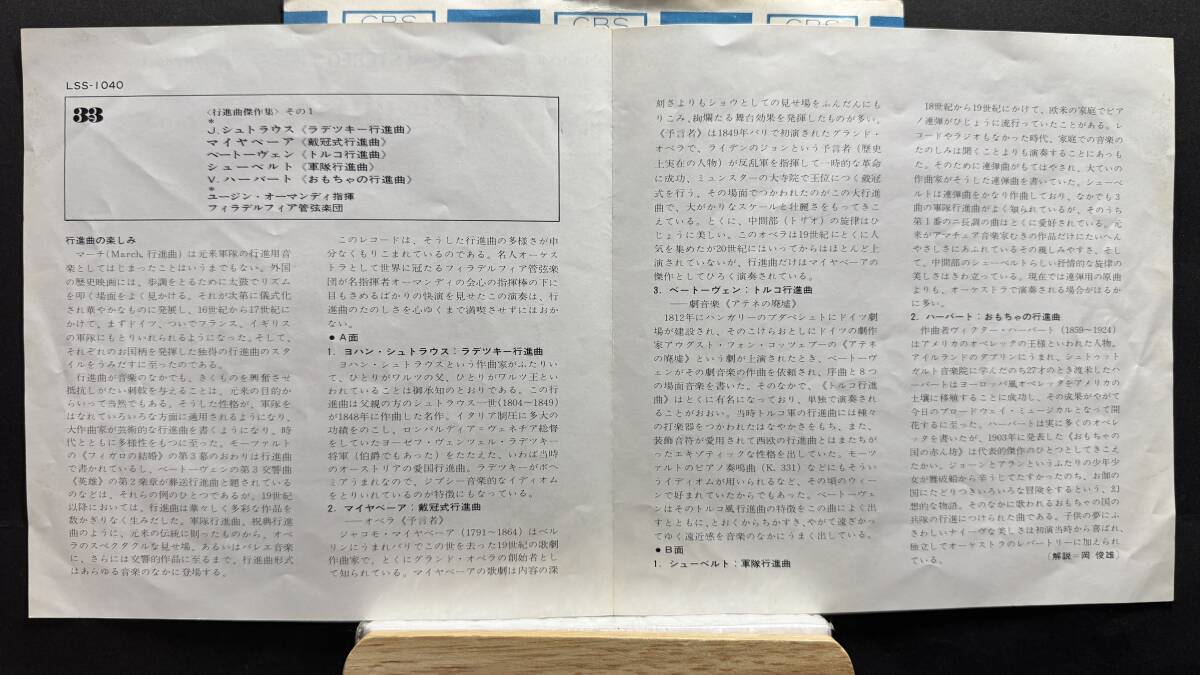 CBS
CBS
CBS
LSS-1040
33
〈行進曲傑作集〉その1
*
J.シュトラウス《ラデツキー行進曲》
マイヤベーア《戴冠式行進曲》
ベートーヴェン《トルコ行進曲》
シューベルト《軍隊行進曲》
V. ハーバート《おもちゃの行進曲》
*
ユージン・オーマンディ指揮
フィラデルフィア管弦楽団
行進曲の楽しみ
マーチ(March, 行進曲)は元来軍隊の行進用音
楽としてはじまったことはいうまでもない。外国
の歴史映画には、歩調をとるために太鼓でリズム
を叩く場面をよく見かける。それが次第に儀式化
され華やかなものに発展し、16世紀から17世紀に
かけて、まずドイツ、ついでフランス、イギリス
の軍隊にもとりいれられるようになった。そして、
それぞれのお国柄を発揮した独得の行進曲のスタ
イルをうみだすに至ったのである。
行進曲が音楽のなかでも、きくものを興奮させ
抵抗しがたい刺戟を与えることは、元来の目的か
らいって当然でもある。そうした性格が、軍隊を
はなれていろいろな方面に適用されるようになり、
大作曲家が芸術的な行進曲を書くようになり、時
代とともに多様性をもつに至った。モーツァルト
の《フィガロの結婚》の第3幕のおわりは行進曲
で書かれているし、ベートーヴェンの第3交響曲
《英雄》の第2楽章が葬送行進曲と題されている
のなどは、それらの例のひとつであるが、19世紀
以降においては、行進曲は華々しく多彩な作品を
数かぎりなく生みだした。軍隊行進曲、祝典行進
曲のように、元来の伝統に則ったものから、オペ
ラのスペクタクルな見せ場、あるいはバレエ音楽
に、さらには交響的作品に至るまで。行進曲形式
はあらゆる音楽のなかに登場する。
このレコードは、そうした行進曲の多様さが申
分なくもりこまれているのである。名人オーケス
トラとして世界に冠たるフィラデルフィア管弦楽
団が名指揮者オーマンディの会心の指揮棒の下に
目もさめるばかりの快演を見せたこの演奏は、行
進曲のたのしさを心ゆくまで満喫せずにはおかな
い。
●A面
1. ヨハン・シュトラウス：ラデツキー行進曲
ヨハン・シュトラウスという作曲家がふたりい
て、ひとりがワルツの父、ひとりがワルツ王とい
われていることは御承知のとおりである。この行
進曲は父親の方のシュトラウス一世(1804〜1849)
が1848年に作曲した名作。イタリア制圧に多大の
功績をのこし、ロンバルディア＝ヴェネチア総督
をしていたヨーゼフ・ヴェンツェル・ラデツキー
将軍（伯爵でもあった）をたたえた、いわば当時
のオーストリアの愛国行進曲。ラデツキーがボヘ
ミアうまれなので、ジプシー音楽的なイディオム
をとりいれているのが特徴にもなっている。
2. マイヤベーア：戴冠式行進曲
——オペラ《予言者》
ジャコモ・マイヤベーア(1791〜1864)はベル
リンにうまれパリでこの世を去った19世紀の歌劇
作曲家で、とくにグランド・オペラの創始者とし
て知られている。マイヤベーアの歌劇は内容の深
刻さよりもショウとしての見せ場をふんだんにも
りこみ、絢爛たる舞台効果を発揮したものが多い。
《予言者》は1849年パリで初演されたグランド・
オペラで、ライデンのジョンという予言者（歴史
上実在の人物）が反乱軍を指揮して一時的な革命
に成功、ミュンスターの大寺院で王位につく戴冠
式を行う。その場面でつかわれたのがこの大行進
曲で、大がかりなスケールと壮麗さをもってきこ
えている。とくに、中間部（トリオ）の旋律はひ
じょうに美しい。このオペラは19世紀にとくに人
気を集めたが20世紀にはいってからはほとんど上
演されていないが、行進曲だけはマイヤベーアの
傑作としてひろく演奏されている。
3. ベートーヴェン：トルコ行進曲
——劇音楽《アテネの廃墟》
1812年にハンガリーのブダペシュトにドイツ劇
場が建設され、そのこけらおとしにドイツの劇作
家アウグスト・フォン・コッツェブーの《アテネ
の廃墟》という劇が上演されたとき、ベートーヴ
ェンがその劇音楽の作曲を依頼され、序曲と8つ
の場面音楽を書いた。そのなかで、《トルコ行進
曲》はとくに有名になっており、単独で演奏され
ることがおおい。当時トルコ軍の行進曲には種々
の打楽器をつかわれたはなやかさをもち、また、
装飾音符が愛用されて西欧の行進曲とはまたちが
ったエキゾティックな性格を出していた。モーツ
ァルトのピアノ奏鳴曲(K. 331)などにもそうい
うイディオムが用いられるなど、その頃のウィー
ンで好まれていたからでもあった。ベートーヴェ
ンはそのトルコ風行進曲の特徴をこの曲によく出
すとともに、とおくからちかずき、やがて遠ざかっ
てゆく遠近感を音楽のなかにうまく出している。
●B面
1. シューベルト：軍隊行進曲
18世紀から19世紀にかけて、欧米の家庭でピア
ノ連弾がひじょうに流行っていたことがある。レ
コードやラジオもなかった時代、家庭での音楽の
たのしみは聞くことよりも演奏することにあっも
た。そのために連弾曲がもてはやされ、大ていの
作曲家がそうした連弾曲を書いていた。シューベ
ルトは連弾曲をかなり作曲しており、なかでも3
曲の軍隊行進曲がよく知られているが、そのうち
第1番のニ長調の曲はとくに愛好されている。元
来がアマチュア音楽家むきの作品だけにたいへん
やさしさにあふれているその親しみやすさ、そし
て、中間部のシューベルトらしい抒情的な旋律の
美しさはきわ立っている。現在では連弾用の原曲
よりも、オーケストラで演奏される場合がはるか
に多い。
2. ハーバート：おもちゃの行進曲
作曲者ヴィクター・ハーバート(1859〜1924)
はアメリカのオペレッタの王様といわれた人物。
アイルランドのダブリンにうまれ、シュトゥット
ガルト音楽院に学んだのち27才のとき渡米したハ
ーバートはヨーロッパ風オペレッタをアメリカの
土壌に移殖することに成功し、その成果がやがて
今日のブロードウェイ・ミュージカルとなって開
花するに至った。ハーバートは実に多くのオペレ
ッタを書いたが、1903年に発表した《おもちゃの
国の赤ん坊》は代表的傑作のひとつとしてきこえ
たかい。ジョーンとアランというふたりの少年少
女が難破船から辛うじてたすかったのち、お伽の
国にたどりつきいろいろな冒険をするという、幻
想的な物語。そのなかに歌われるおもちゃの国の
兵隊の行進につけられた曲である。子供の夢にふ
さわしいナイーヴな美しさは初演当時から喜ばれ、
独立してオーケストラのレパートリーに加えられ
ている。
〔解説＝岡 俊雄〕